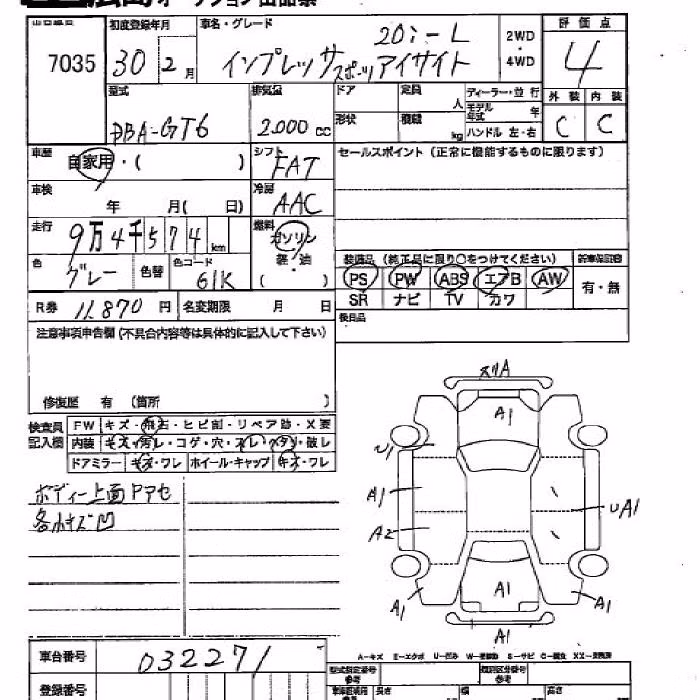 オークション出品票
7035
初度登録年月
30 2月
車名・グレード
20i-L
インプレッサスポーツアイサイト
2WD
・
4WD
評価点
4
型式
DBA-GT6
排気量
2.000cc
ドア
定員 人
形状
積載 kg
ディーラー・並行
モデル年式 年
ハンドル 左・右
外装 内装
C C
車歴 自家用・( )
シフト FAT
セールスポイント (正常に機能するものに限ります)
車検 年 月( 日)
冷房 AAC
走行 9万4千574km
燃料 ガソリン・軽油
( )
色 グレー 色替
色コード 61K
装備品 (純正品に限り○をつけてください)
PS PW ABS エアB AW
SR ナビ TV カワ
有・無
R券 11,870円
名変期限 月 日
後日品
注意事項申告欄 (不具合内容等は具体的に記入して下さい)
修復歴 有 (箇所 )
検査員記入欄
FW キズ・飛石・ヒビ割・リペア跡・X要
内装 キズ・汚レ・コゲ・穴・スレ・ヘタリ・破レ
ドアミラー キズ・ワレ ホイール・キャップ キズ・ワレ
ボディー上面Pアセ
各小キズ凹
スリA
A1
A1
A2
UA1
A1
A1
A1
A1
車台番号 032271
登録番号
A-キズ E-エクボ U-凹み W-補修跡 S-サビ C-腐食 XX-交換済
型式指定番号
参考
類別区分番号
参考
長さ 幅 高さ